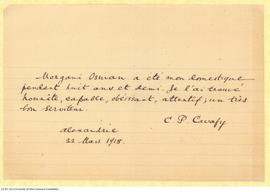 Morgani Osman a été mon domestique
pendant huit ans et demi. Je l'ai trouvé
honnête, capable, obéissant, attentif; un très
bon serviteur.
C. P. Cavafy
Alexandrie
22 Mars 1918.